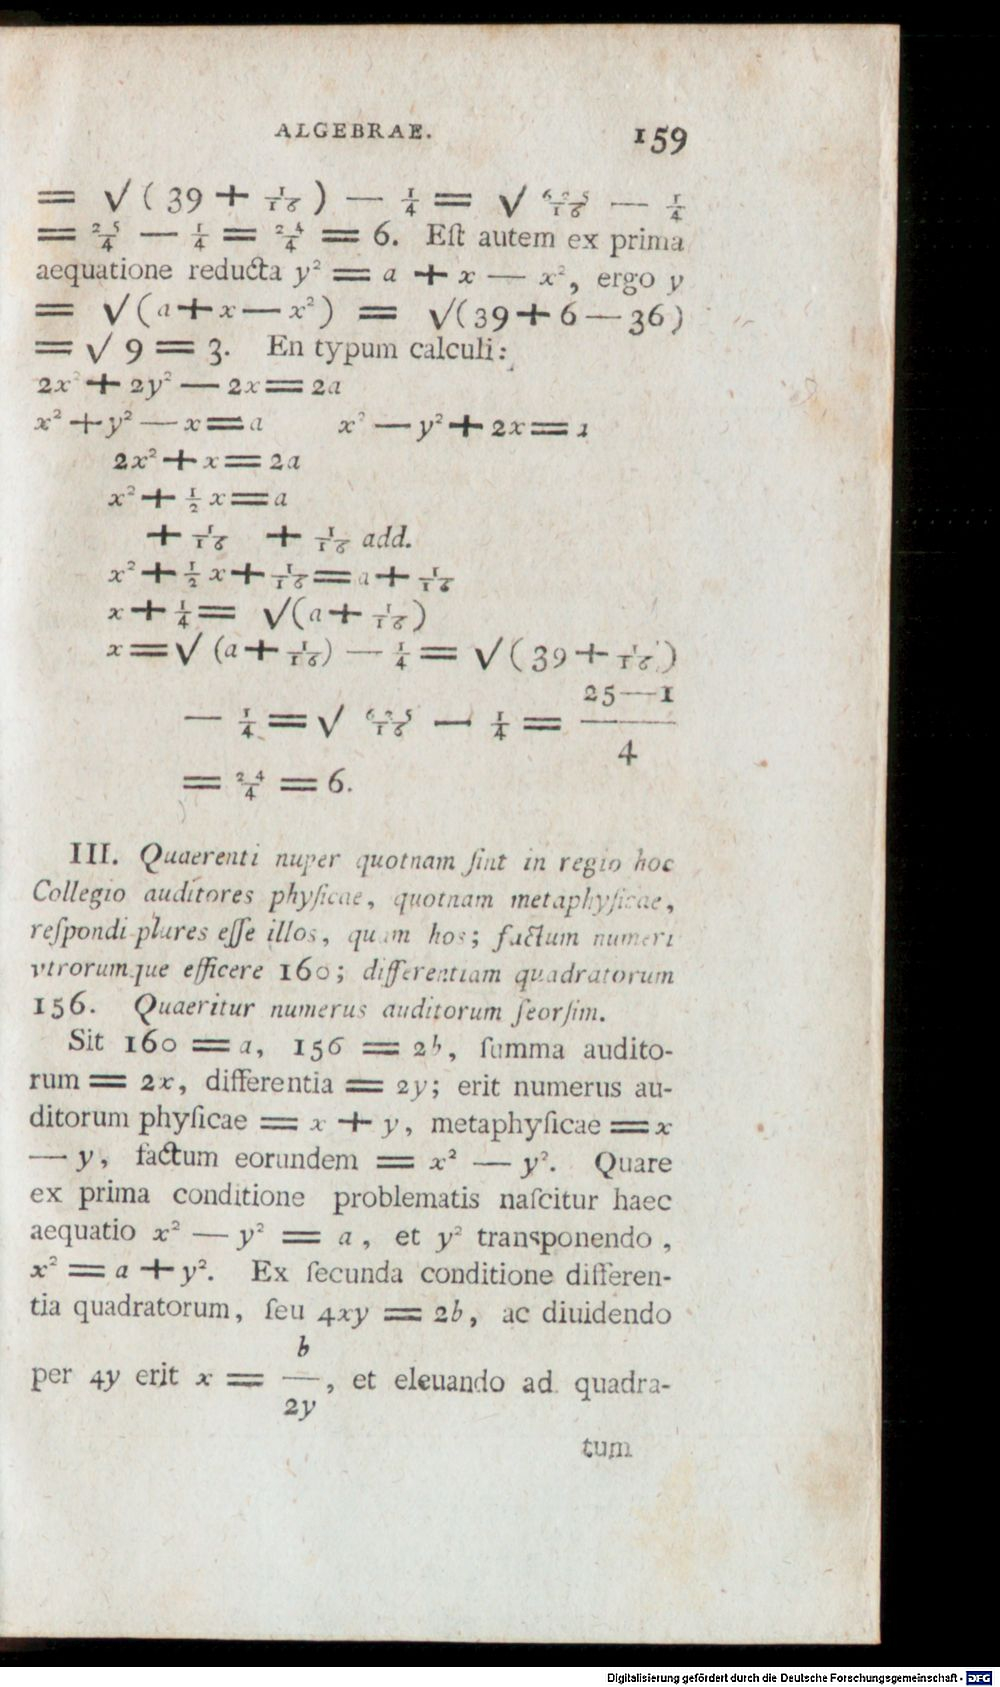 ALGEBRAE. 159
= √(39 + 1/16) — 1/4 = √ 625/16 — 1/4
= 25/4 — 1/4 = 24/4 = 6. Eſt autem ex prima
aequatione reducta y² = a + x — x², ergo y
= √(a+x—x²) = √(39+6—36)
= √9 = 3. En typum calculi:
2x² + 2y² — 2x = 2a
x² + y² — x = a x² — y² + 2x = a
2x² + x = 2a
x² + 1/2 x = a
+ 1/16 + 1/16 add.
x² + 1/2 x + 1/16 = a + 1/16
x + 1/4 = √(a + 1/16)
x = √(a + 1/16) — 1/4 = √(39 + 1/16)
— 1/4 = √ 625/16 — 1/4 = (25—1)/4
= 24/4 = 6.
III. Quaerenti nuper quotnam ſint in regio hoc
Collegio auditores phyſicae, quotnam metaphyſicae,
reſpondi plures eſſe illos, quam hos; factum numeri
vtrorumque efficere 160; differentiam quadratorum
156. Quaeritur numerus auditorum ſeorſim.
Sit 160 = a, 156 = 2b, ſumma audito-
rum = 2x, differentia = 2y; erit numerus au-
ditorum phyſicae = x + y, metaphyſicae = x
— y, factum eorundem = x² — y². Quare
ex prima conditione problematis naſcitur haec
aequatio x² — y² = a, et y² transponendo,
x² = a + y². Ex ſecunda conditione differen-
tia quadratorum, ſeu 4xy = 2b, ac diuidendo
per 4y erit x = b/2y, et eleuando ad quadra-
tum
Digitalisierung gefördert durch die Deutsche Forschungsgemeinschaft - DFG